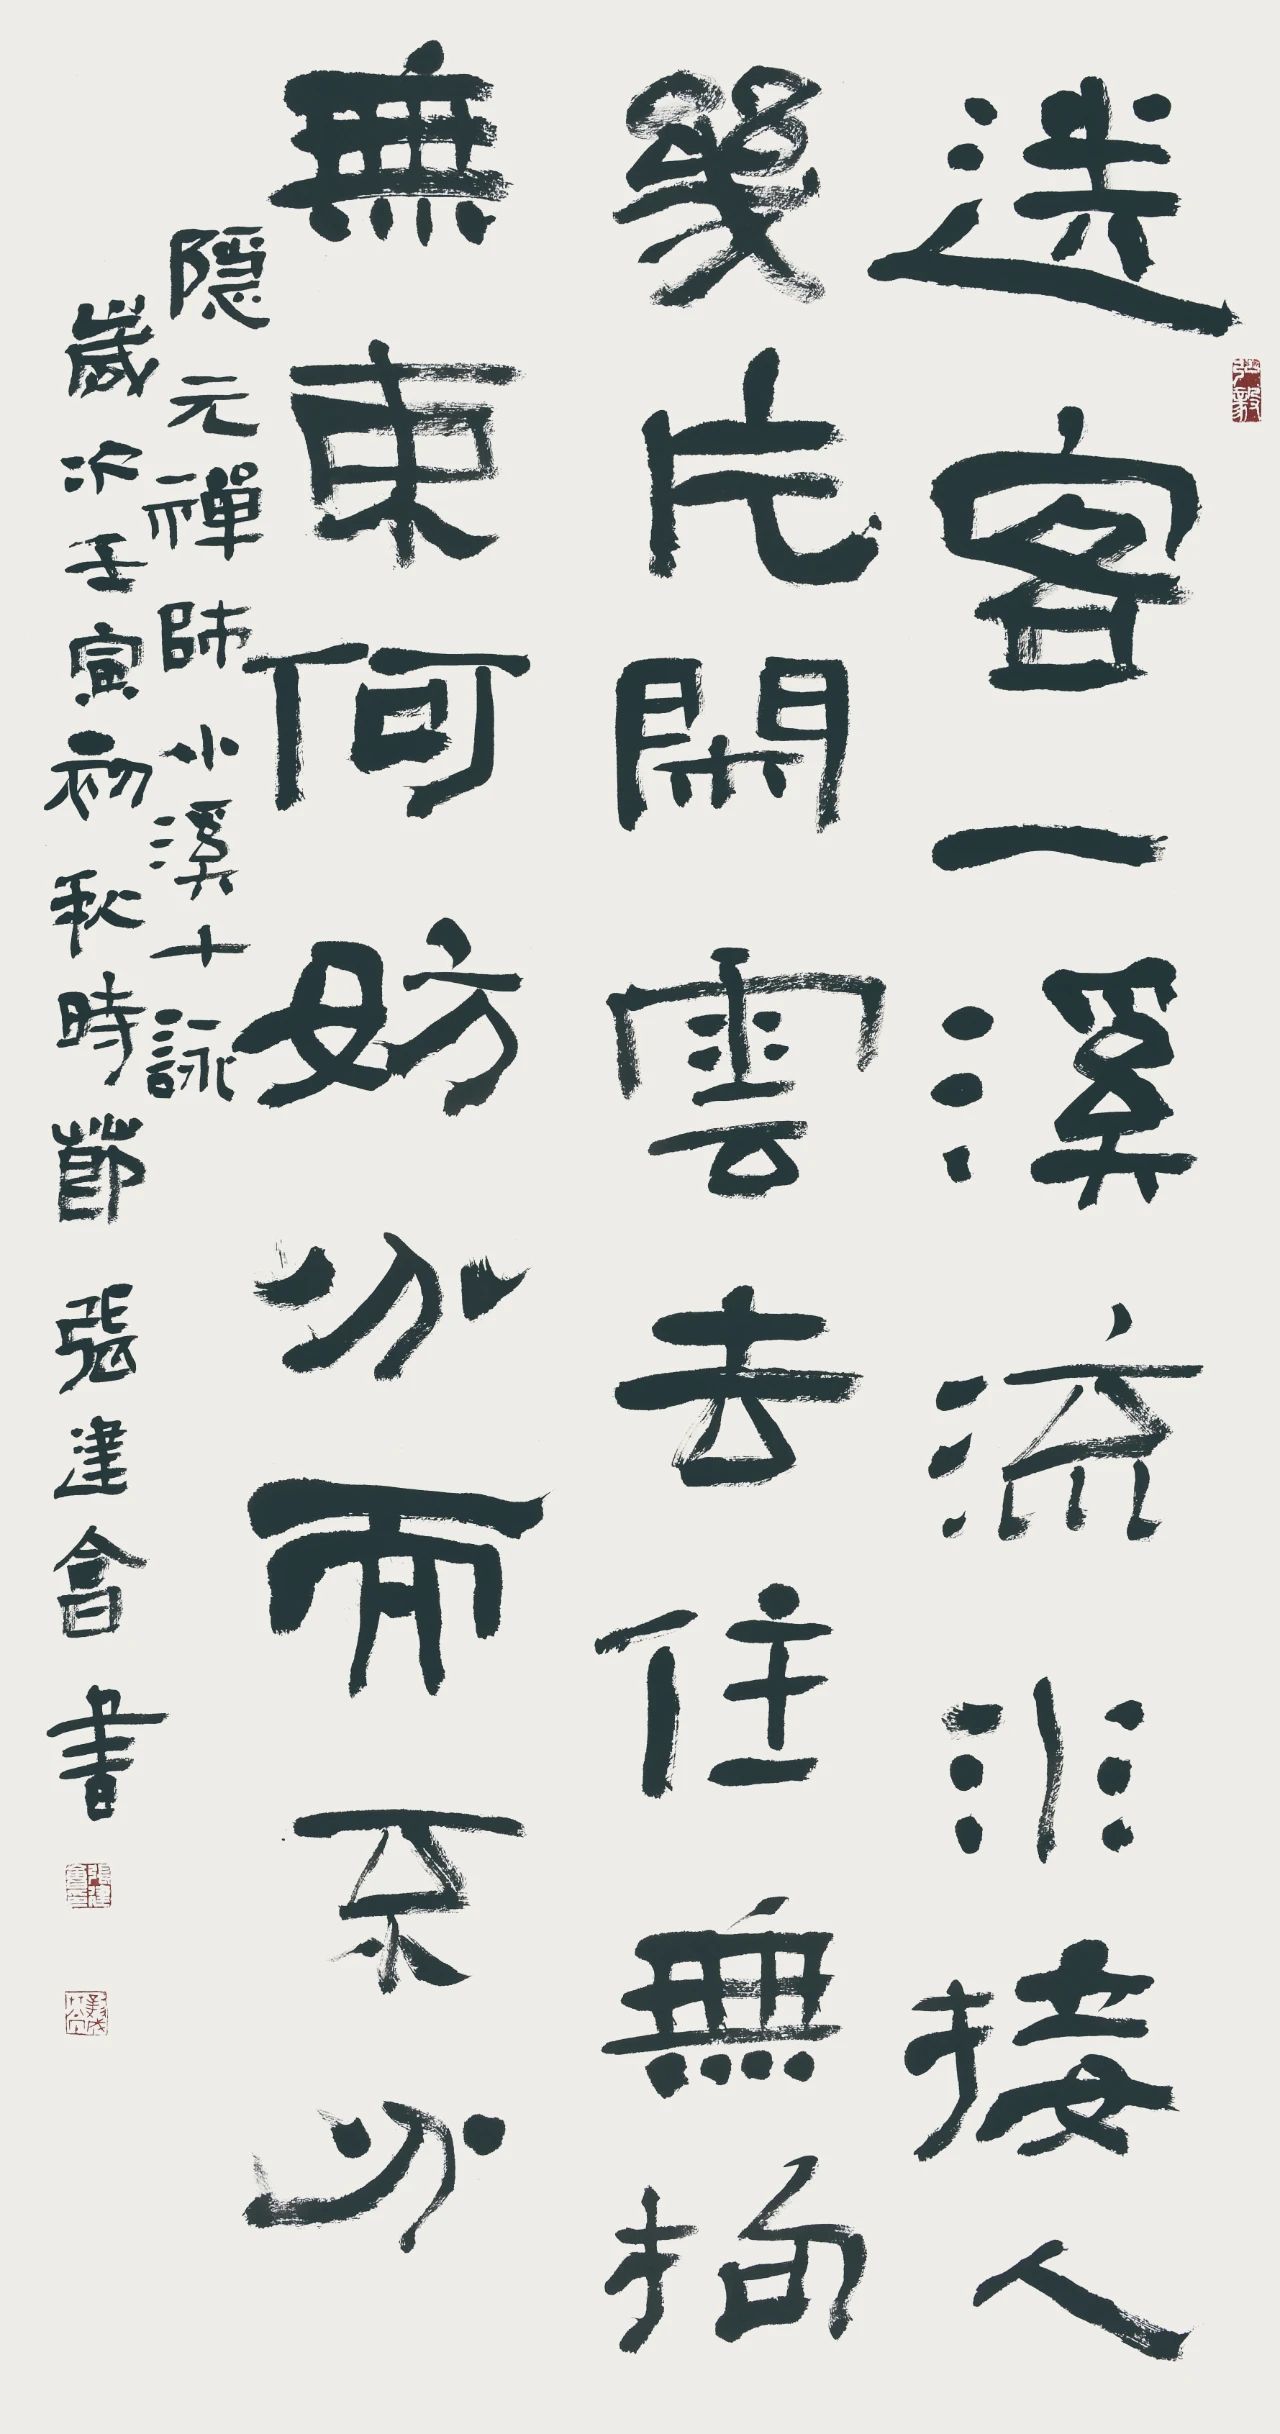 送客一溪流水接人
幾片閑雲去住無拘
無束何妨分雨分
隱元禪師小溪十詠
歲次壬寅初秋時節張建會書